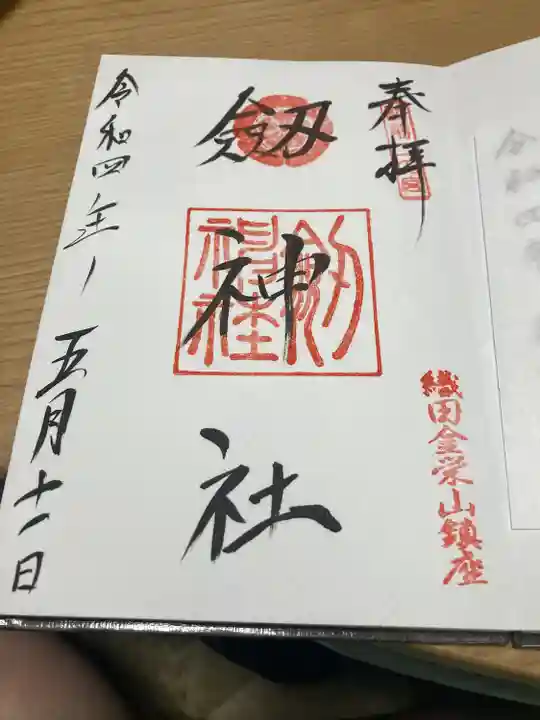 奉拝
織田金栄山鎮座
劔神社
劔神社
令和四年五月十一日